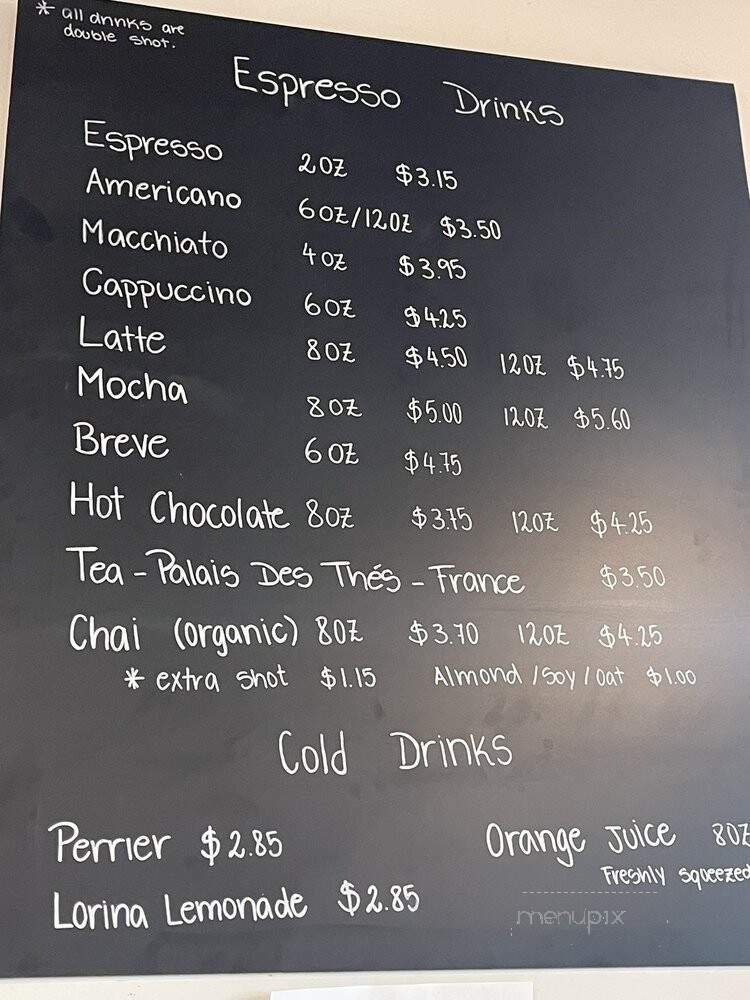 * all drinks are
double shot.
Espresso Drinks
Espresso 2oz $3.15
Americano 6oz/12oz $3.50
Macchiato 4oz $3.95
Cappuccino 6oz $4.25
Latte 8oz $4.50 12oz $4.75
Mocha 8oz $5.00 12oz $5.60
Breve 6oz $4.75
Hot Chocolate 8oz $3.75 12oz $4.25
Tea - Palais Des Thés - France $3.50
Chai (organic) 8oz $3.70 12oz $4.25
* extra shot $1.15 Almond /Soy / oat $1.00
Cold Drinks
Perrier $2.85 Orange Juice 8oz
Freshly squeezed
Lorina Lemonade $2.85
menupix